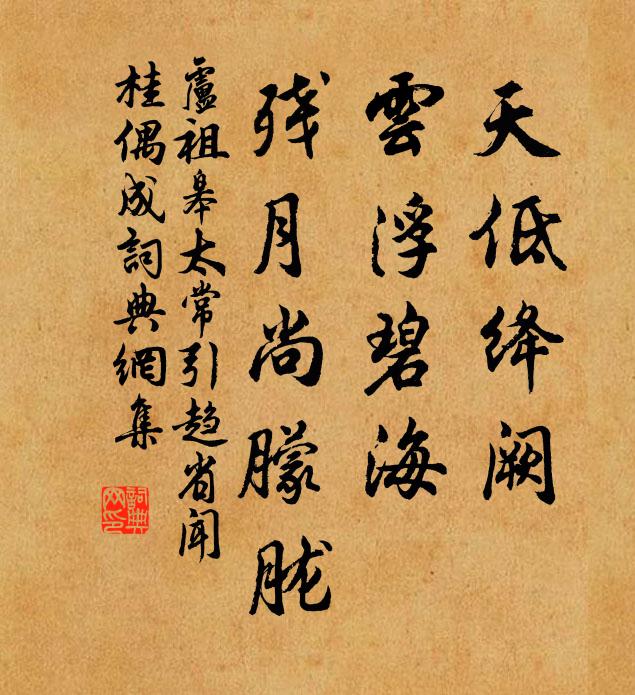 天低绛阙
雲浮碧海
残月尚朦胧
盧祖皋太常引趋省闻
桂偶成詞典網集
詞典網印